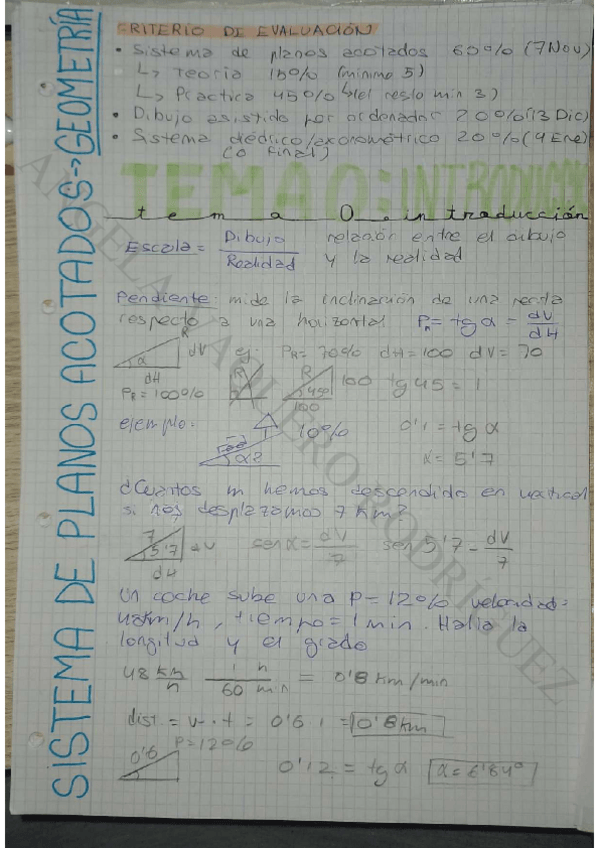 CRITERIO DE EVALUACIÓN
• Sistema de planos acotados 60% (7 Nov)
↳ Teoría 15% (mínimo 5)
↳ Práctica 45% ↳ (el resto min 3)
• Dibujo asistido por ordenador 20% (13 Dic)
• Sistema diédrico/axonométrico 20% (9 Ene)
(o final)
SISTEMA DE PLANOS ACOTADOS → GEOMETRÍA
TEMA 0: INTRODUCC
tema 0. intraducción
Escala = Dibujo / Realidad relación entre el dibujo
y la realidad
Pendiente: mide la inclinación de una recta
respecto a una horizontal PR = tg α = dV/dH
R α dV ej: PR = 70% dH = 100 dV = 70
dH
PR = 100% R R 45º 100 tg 45 = 1
100
ejemplo: 10% 0'1 = tg α
α? α = 5'7
¿Cuántos m hemos descendido en vertical
si nos desplazamos 7 km?
7 5'7 dV sen α = dV/7 sen 5'7 = dV/7
dH
Un coche sube una P = 12% velocidad =
48 km/h, tiempo = 1 min. Halla la
longitud y el grado
48 km/h 1 h/60 min = 0'8 km/min
dist. = v · t = 0'8 · 1 = 0'8 km
P = 12%
0'12 = tg α α = 6'84º
ANGELA VAQUERO RODRÍGUEZ